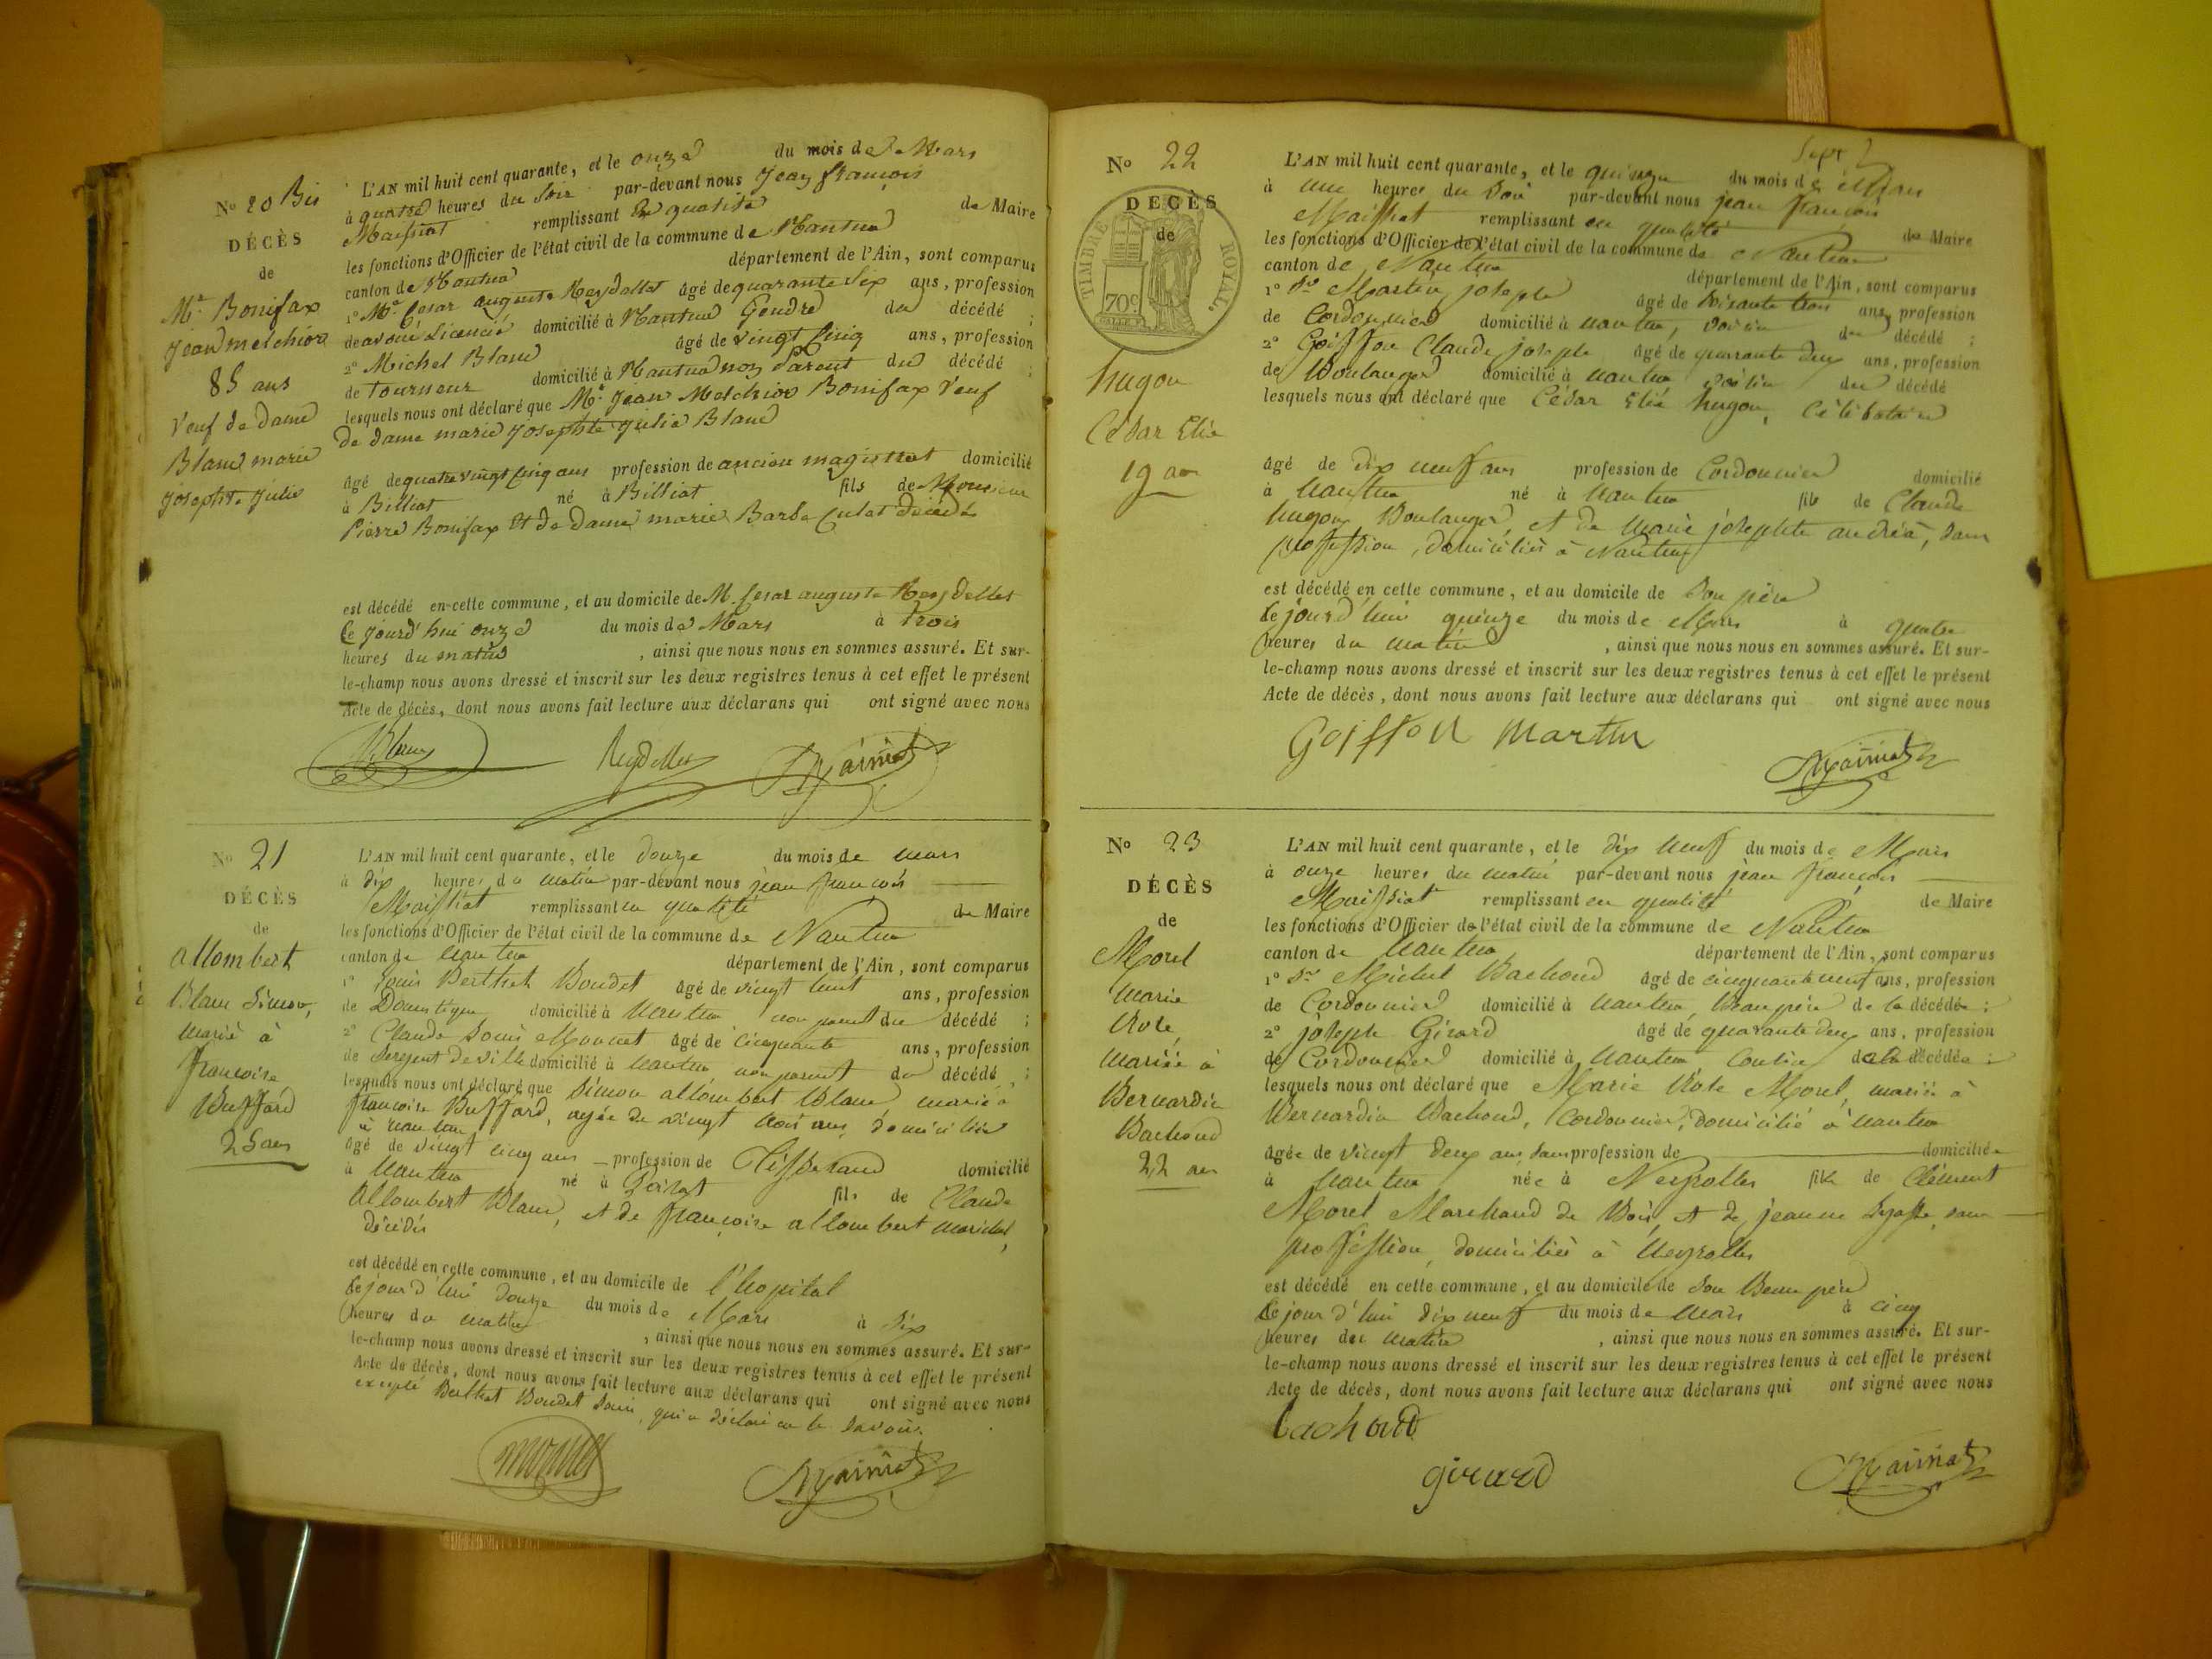 No 20 Bis
DÉCÈS
de
Mr. Bonifax
Jean melchior
85 ans
Veuf de dame
Blanc marie
josephte Julie
L'AN mil huit cent quarante, et le onze du mois de Mars
à quatre heures du Soir par-devant nous Jean françois
Maissiat remplissant en qualité de Maire
les fonctions d'Officier de l'état civil de la commune de Nantua
canton de Nantua département de l'Ain, sont comparus
1° Mr. Cesar auguste Reydellet âgé de quarante Six ans, profession
de avoué Licencié domicilié à Nantua Gendre du décédé ;
2° Michel Blanc âgé de vingt Cinq ans, profession
de Tourneur domicilié à Nantua non Parent du décédé ;
lesquels nous ont déclaré que Mr. Jean Melchior Bonifax Veuf
De dame marie Josephte Julie Blanc
âgé de quatre vingt Cinq ans profession de ancien magistrat domicilié
à Billiat né à Billiat fils de Monsieur
Pierre Bonifax Et de dame marie Barbe Culet décédés
est décédé en cette commune, et au domicile de M. Cesar auguste Reydellet
Ce jourd'hui onze du mois de Mars à trois
heures du matin , ainsi que nous nous en sommes assuré. Et sur-
le-champ nous avons dressé et inscrit sur les deux registres tenus à cet effet le présent
Acte de décès, dont nous avons fait lecture aux déclarans qui ont signé avec nous
Blanc Reydellet Maissiat
No 21
DÉCÈS
de
allombert
Blanc Simon,
marié à
françoise
Buffard
25 ans
L'AN mil huit cent quarante, et le douze du mois de mars
à dix heures du matin par-devant nous jean françois
Maissiat remplissant en qualité de Maire
les fonctions d'Officier de l'état civil de la commune de Nantua
canton de nantua département de l'Ain, sont comparus
1° Louis Berthet Boudet âgé de vingt huit ans, profession
de Domestique domicilié à Nantua non parent du décédé ;
2° Claude Louis Monnet âgé de Cinquante ans, profession
de Sergent de ville domicilié à nantua non parent du décédé ;
lesquels nous ont déclaré que Simon allombert Blanc marié à
françoise Buffard, agée de vingt trois ans, domiciliée
à nantua
âgé de vingt cinq ans profession de Tisserand domicilié
à Nantua né à fils de Claude
Allombert Blanc, et de françoise allombert marichal,
décédés
est décédé en cette commune, et au domicile de l'hopital
Ce jour d'hui douze du mois de Mars à Six
heures du matin , ainsi que nous nous en sommes assuré. Et sur-
le-champ nous avons dressé et inscrit sur les deux registres tenus à cet effet le présent
Acte de décès, dont nous avons fait lecture aux déclarans qui ont signé avec nous
excepté Berthet Boudet Louis, qui a déclaré ne le savoir.
monnet Maissiat
Sept
No 22
DECÈS
de
TIMBRE ROYAL.
70c
hugon
César Elie
19 ans
L'AN mil huit cent quarante, et le quinze du mois de Mars
à une heures du Soir par-devant nous jean françois
Maissiat remplissant en qualité de Maire
les fonctions d'Officier de l'état civil de la commune de Nantua
canton de Nantua département de l'Ain, sont comparus
1° Sr Martin joseph âgé de Soixante trois ans, profession
de Cordonnier domicilié à nantua, voisin du décédé ;
2° Goiffon Claude joseph âgé de quarante deux ans, profession
de Boulanger domicilié à nantua voisin du décédé
lesquels nous ont déclaré que César Elie hugon, Célibataire
âgé de dix neuf ans profession de Cordonnier domicilié
à Nantua né à Nantua fils de Claude
hugon Boulanger, et de Marie josephte andréa, sans
profession, domiciliés à Nantua
est décédé en cette commune, et au domicile de Son père
Ce jourd'hui quinze du mois de Mars à quatre
heures du matin , ainsi que nous nous en sommes assuré. Et sur-
le-champ nous avons dressé et inscrit sur les deux registres tenus à cet effet le présent
Acte de décès, dont nous avons fait lecture aux déclarans qui ont signé avec nous
Goiffon Martin
Maissiat
No 23
DÉCÈS
de
Morel
Marie
Rose,
mariée à
Bernardin
Bachoud
22 ans
L'AN mil huit cent quarante, et le dix neuf du mois de Mars
à onze heures du matin par-devant nous jean françois
Maissiat remplissant en qualité de Maire
les fonctions d'Officier de l'état civil de la commune de Nantua
canton de Nantua département de l'Ain, sont comparus
1° Sr Michel Bachoud âgé de cinquante neuf ans, profession
de Cordonnier domicilié à nantua, Beau père de la décédée ;
2° joseph Girard âgé de quarante deux ans, profession
de Cordonnier domicilié à Nantua Cousin de la décédée ;
lesquels nous ont déclaré que Marie Rose Morel, mariée à
Bernardin Bachoud, Cordonnier, domicilié à nantua
âgée de vingt deux ans, sans profession de domiciliée
à Nantua née à Neyrolles fille de Clément
Morel Marchand de Bois, et de jeanne sans
profession, domiciliés à Neyrolles
est décédé en cette commune, et au domicile de Son Beau père
Ce jour d'hui dix neuf du mois de mars à cinq
heures du matin , ainsi que nous nous en sommes assuré. Et sur-
le-champ nous avons dressé et inscrit sur les deux registres tenus à cet effet le présent
Acte de décès, dont nous avons fait lecture aux déclarans qui ont signé avec nous
bachoud
girard Maissiat